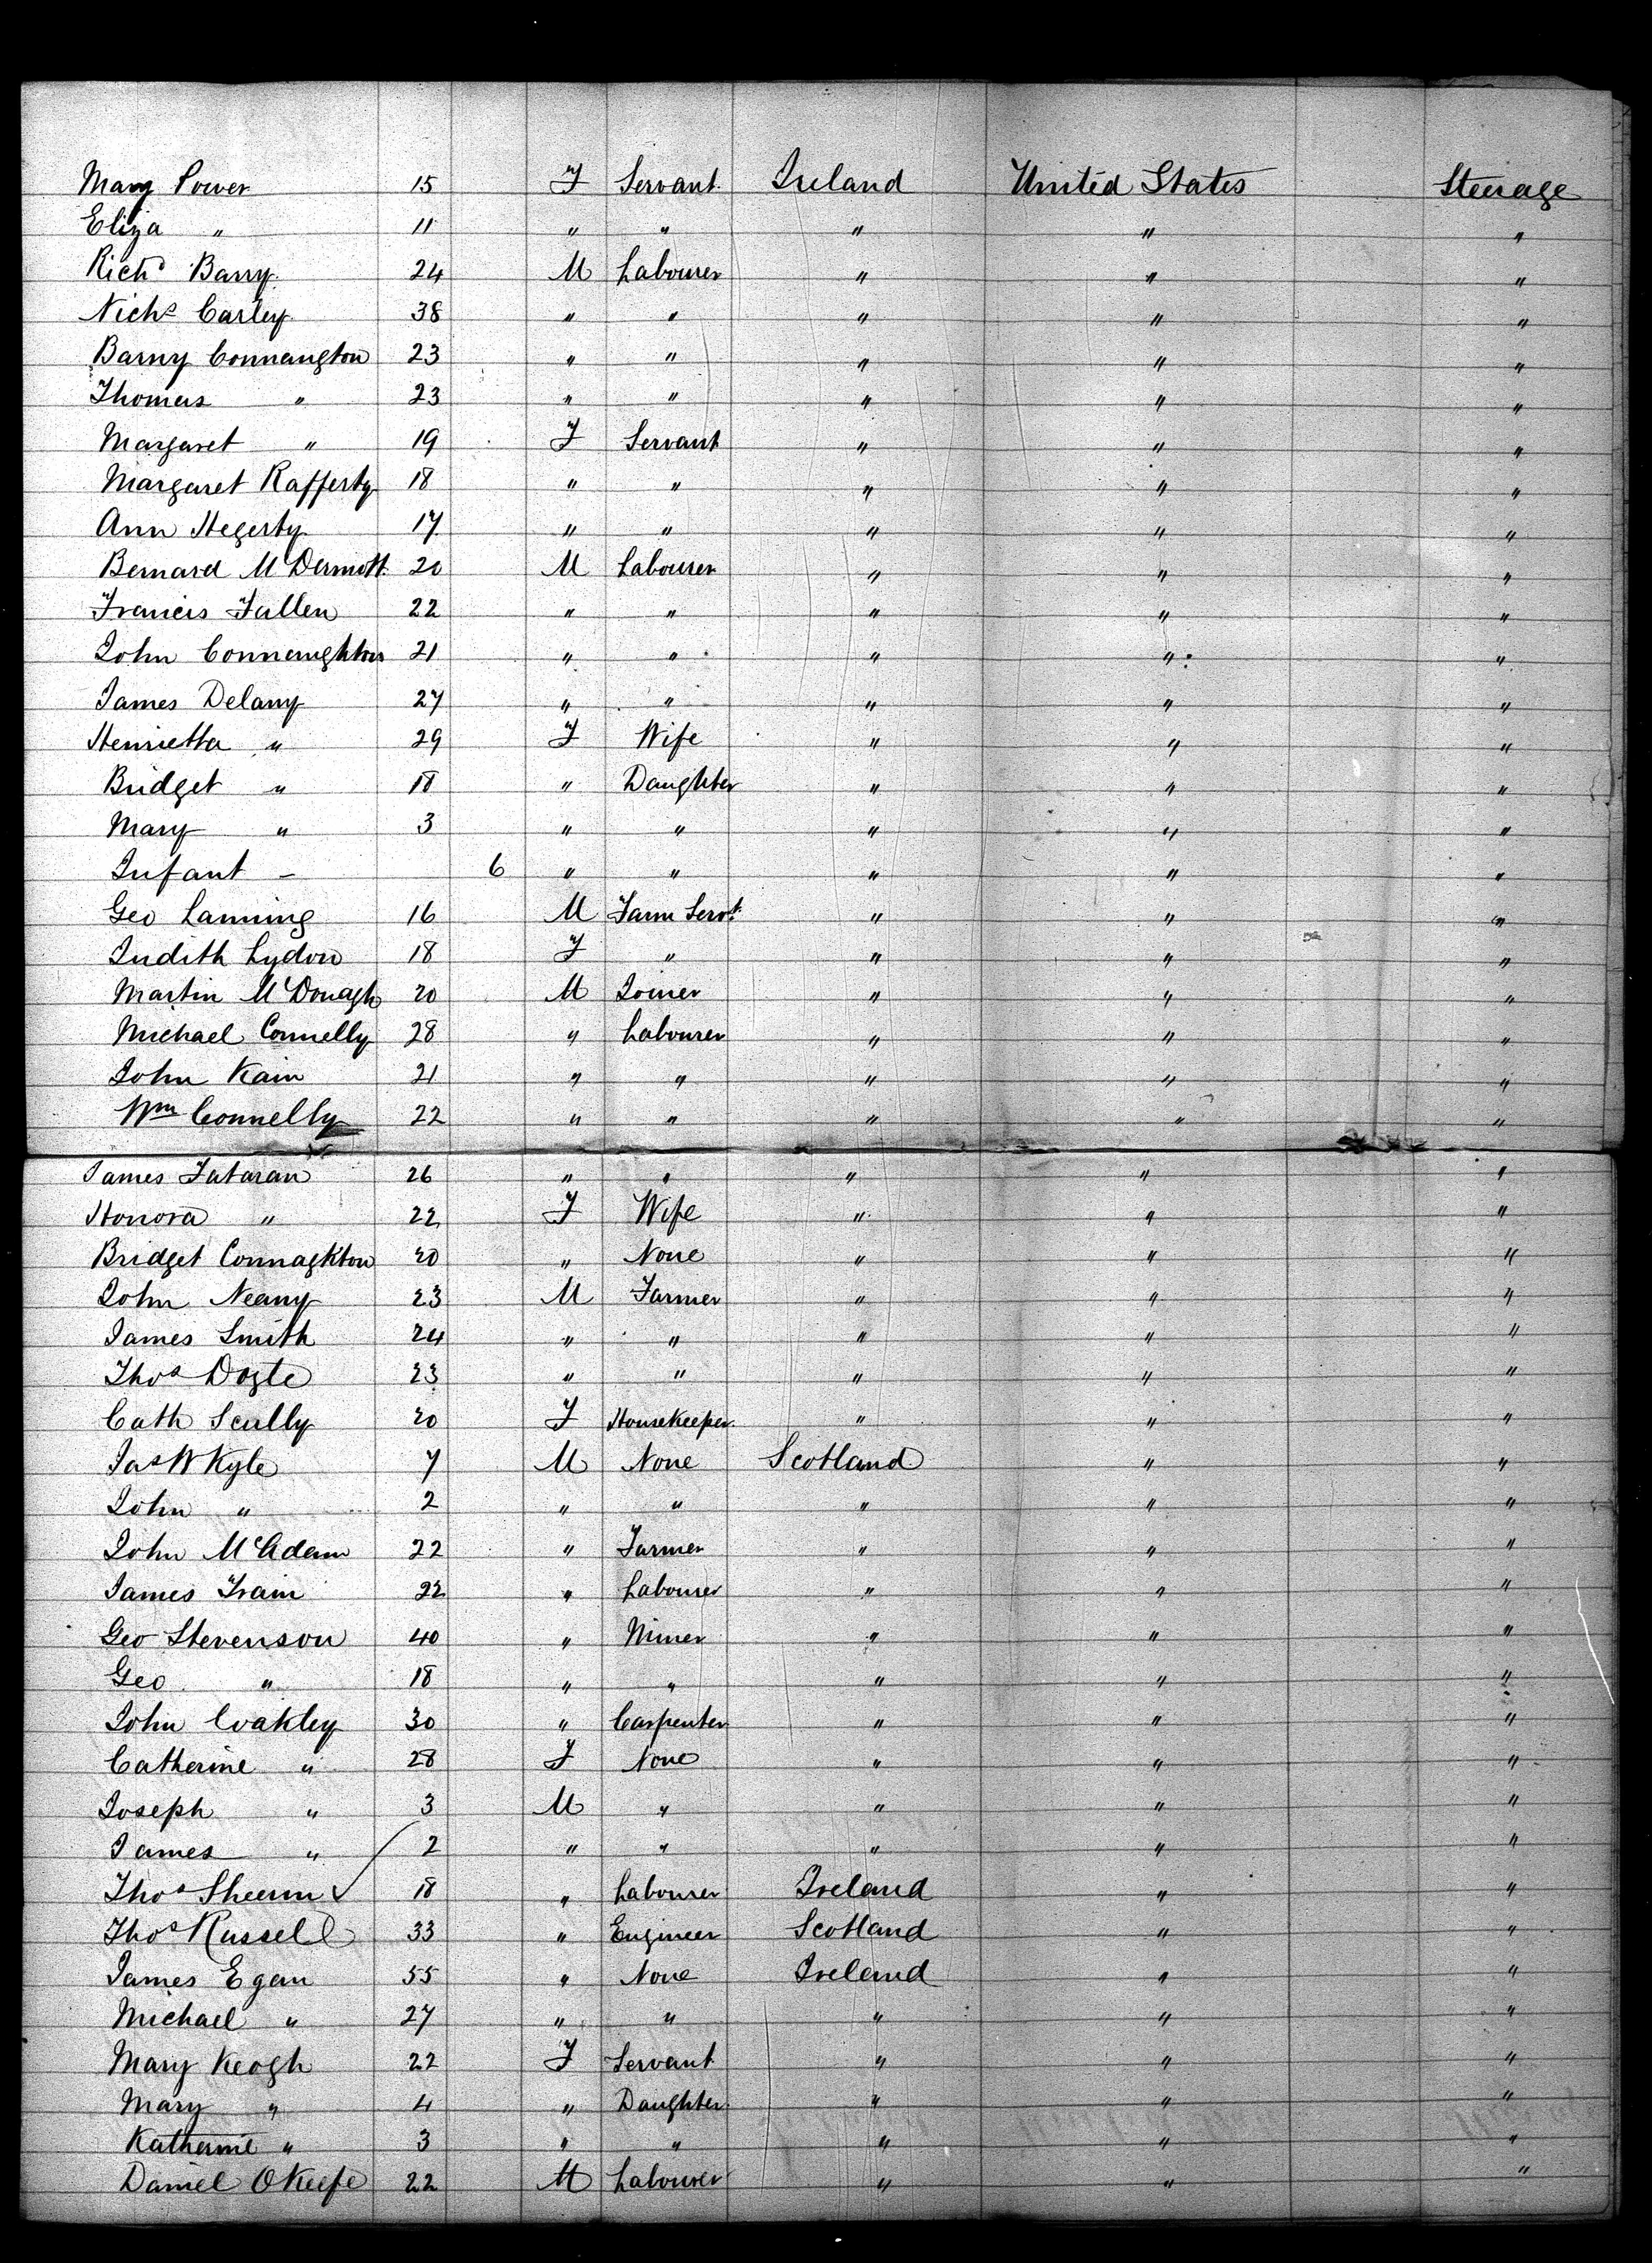 Mary Power 15 F Servant Ireland United States Steerage
Eliza " 11 " " " " "
Richd Barry 24 M Labourer " " "
Nichs Carley 38 " " " " "
Barny Connangton 23 " " " " "
Thomas " 23 " " " " "
Margaret " 19 F Servant " " "
Margaret Rafferty 18 " " " " "
Ann Hegerty 17 " " " " "
Bernard McDermott 20 M Labourer " " "
Francis Fallen 22 " " " " "
John Connaughton 21 " " " " "
James Delany 27 " " " " "
Henrietta " 29 F Wife " " "
Bridget " 18 " Daughter " " "
Mary " 3 " " " " "
Infant - 6 " " " " "
Geo Lanning 16 M Farm Servt " " "
Judith Lydon 18 F " " " "
Martin McDonagh 20 M Joiner " " "
Michael Connelly 28 " Labourer " " "
John Kain 21 " " " " "
Wm Connelly 22 " " " " "
James Fataran 26 " " " " "
Honora " 22 F Wife " " "
Bridget Connaghton 20 " None " " "
John Neany 23 M Farmer " " "
James Smith 24 " " " " "
Thos Dogle 23 " " " " "
Cath Scully 20 F Housekeeper " " "
Jas W Kyle 7 M None Scotland " "
John " 2 " " " " "
John McAdam 22 " Farmer " " "
James Train 22 " Labourer " " "
Geo Stevenson 40 " Miner " " "
Geo " 18 " " " " "
John Coakley 30 " Carpenter " " "
Catherine " 28 F None " " "
Joseph " 3 M " " " "
James " 2 " " " " "
Thos Sheerin 18 " Labourer Ireland " "
Thos Russell 33 " Engineer Scotland " "
James Egan 55 " None Ireland " "
Michael " 27 " " " " "
Mary Keogh 22 F Servant " " "
Mary " 4 " Daughter " " "
Katherine " 3 " " " " "
Daniel OKeefe 22 M Labourer " " "